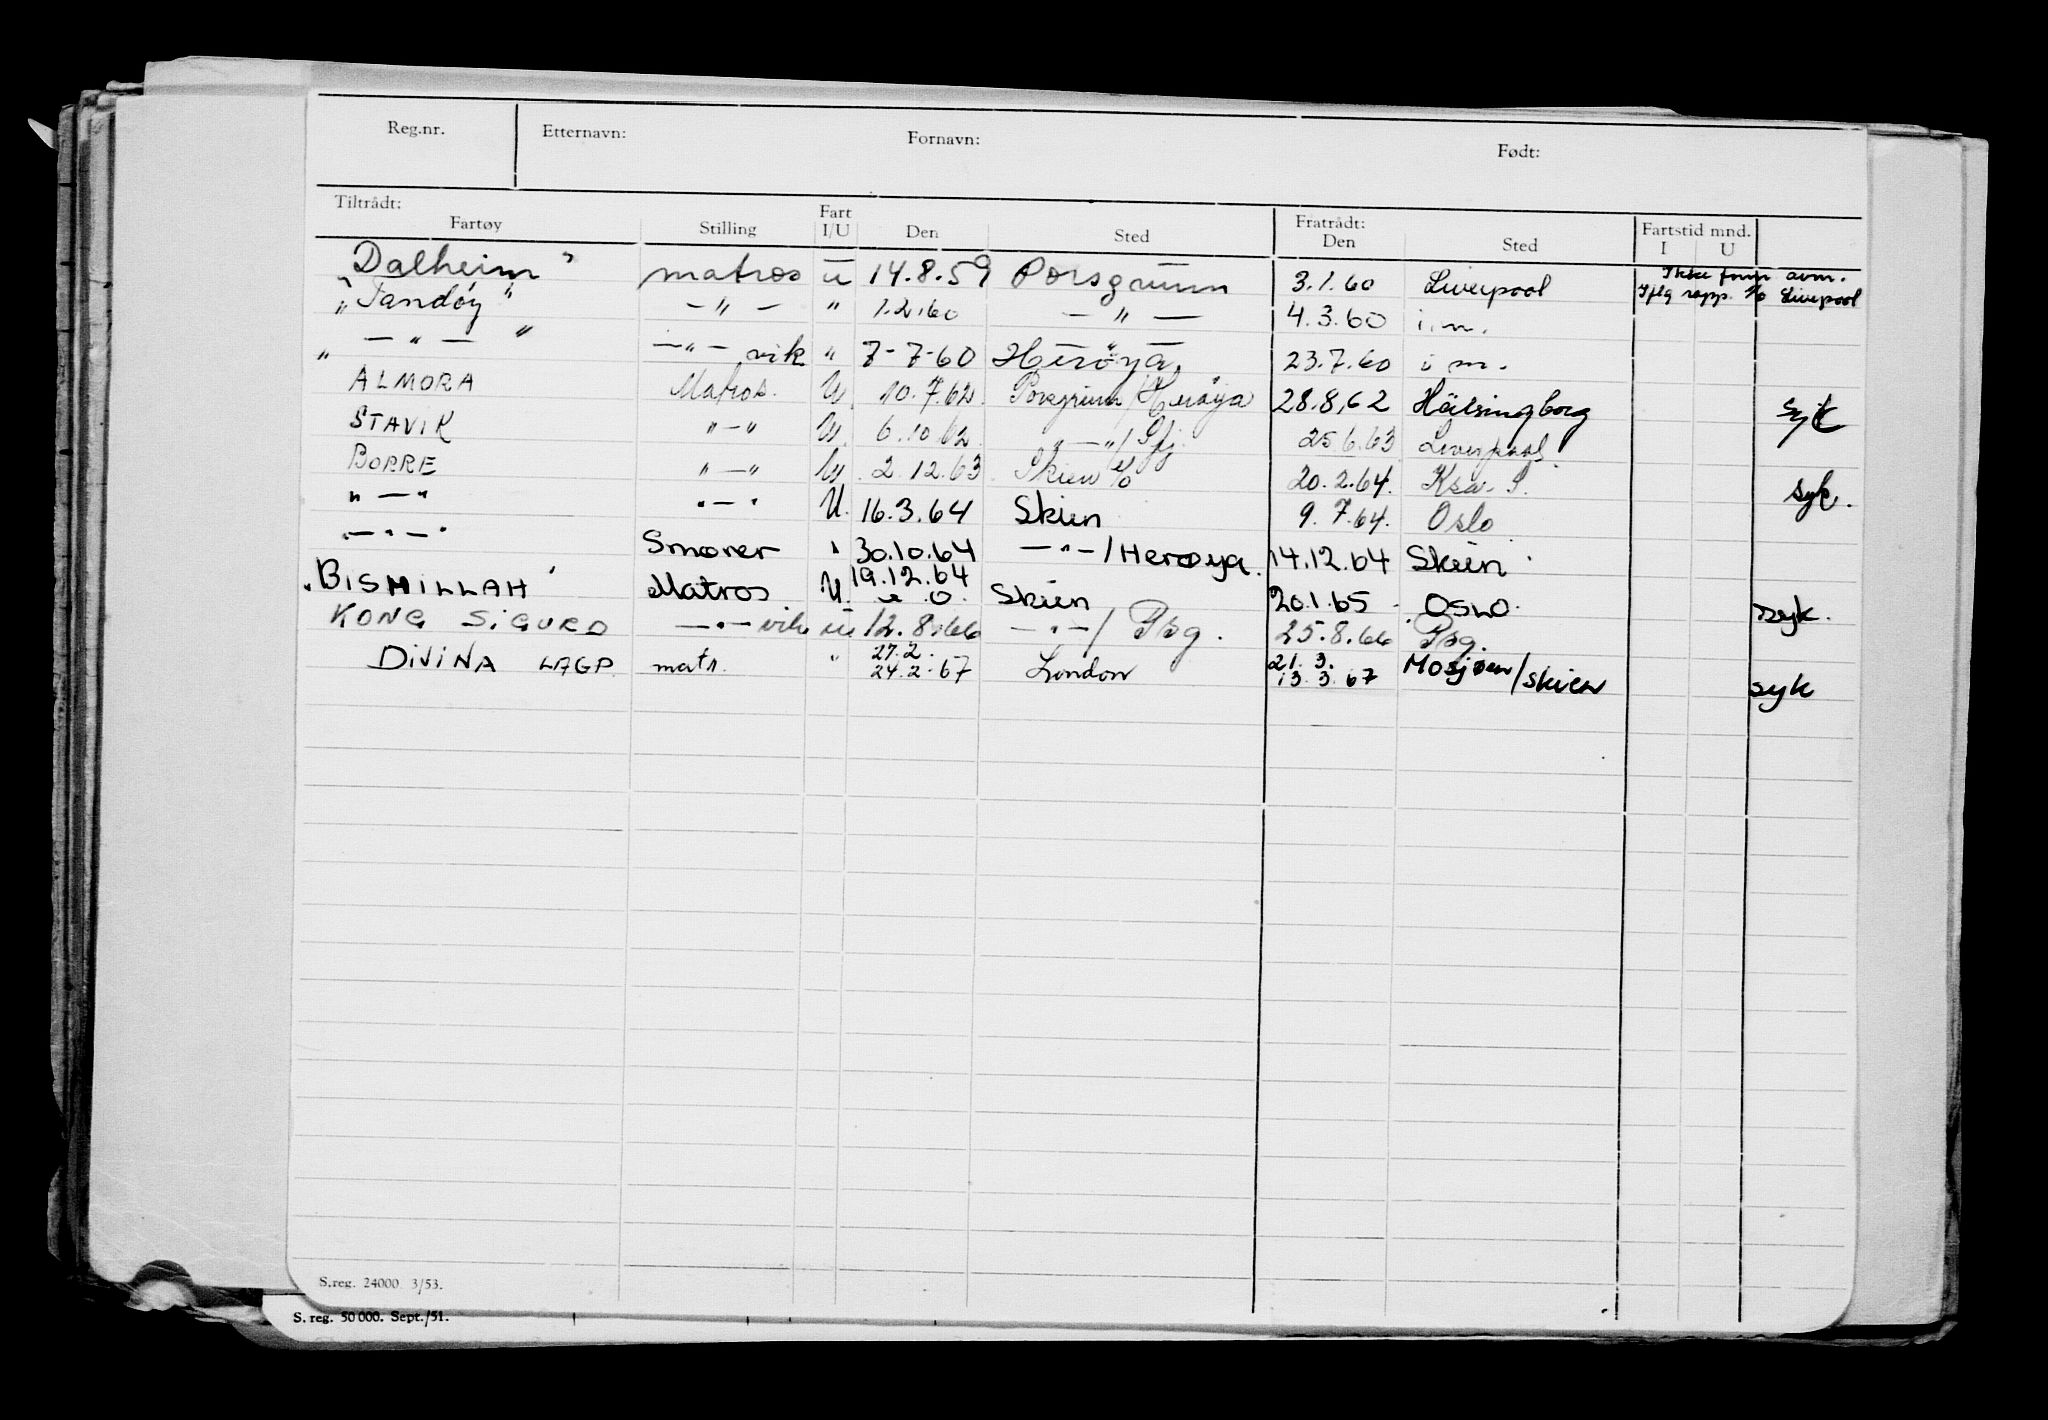 Reg.nr. Etternavn: Fornavn: Født:
Tiltrådt: Fratrådt: Fartstid mnd.
Fartøy Stilling Fart I/U Den Sted Den Sted I U
"Dalheim" matros u 14.8.59 Porsgrunn 3.1.60 Liverpool Ikke avm.
Iflg rapp. Liverpool
"Tandøy" — " — " 1.2.60 — " — 4.3.60 i.m.
" — " — " — " — vik " 7-7-60 Herøya 23.7.60 i m.
ALMORA Matros. U. 10.7.62. Porsgrunn/Herøya 28.8.62 Hälsingborg syk
STAVIK " — " U. 6.10.62. " — "/ 25.6.63 Liverpool.
BORRE " — " U. 2.12.63 Skien 20.2.64. Ksa. S. syk.
" — " " — " U. 16.3.64 Skien 9.7.64. Oslo
— " — " Smører " 30.10.64 — " —/Herøya. 14.12.64 Skien
"BISMILLAH" Matros U. 19.12.64 Skien 20.1.65 OSLO. syk.
KONG SIGURD — " — vik u 12.8.66 — " —/ Psg. 25.8.66 Psg.
DIVINA LAGP. matr. " 27.2. 24.2.67 London 21.3. 13.3.67 Mosjøen/skien syk
S.reg. 24000 3/53.
S. reg. 50000. Sept./51.